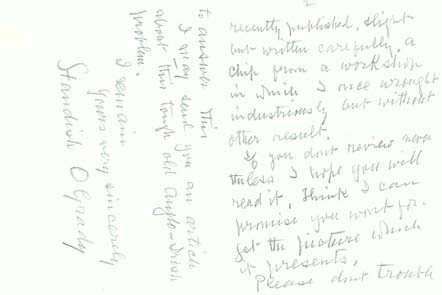 2
recently published, slight
but written carefully, a
chip from a workshop
in which I once wrought
industriously but without
other result.
If you dont review never
theless I hope you will
read it, think I can
promise you wont for-
get the picture which
it presents,
Please dont trouble
to answer this
I may send you an article
about this tough old Anglo-Irish
problem.
I remain
yours very sincerely
Standish O'Grady